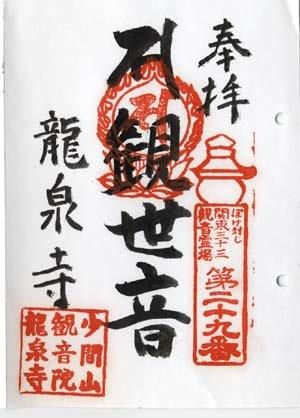 奉拝
ぼけ封じ
関東三十三
観音霊場
第二十九番
観世音
龍泉寺
少間山
観音院
龍泉寺